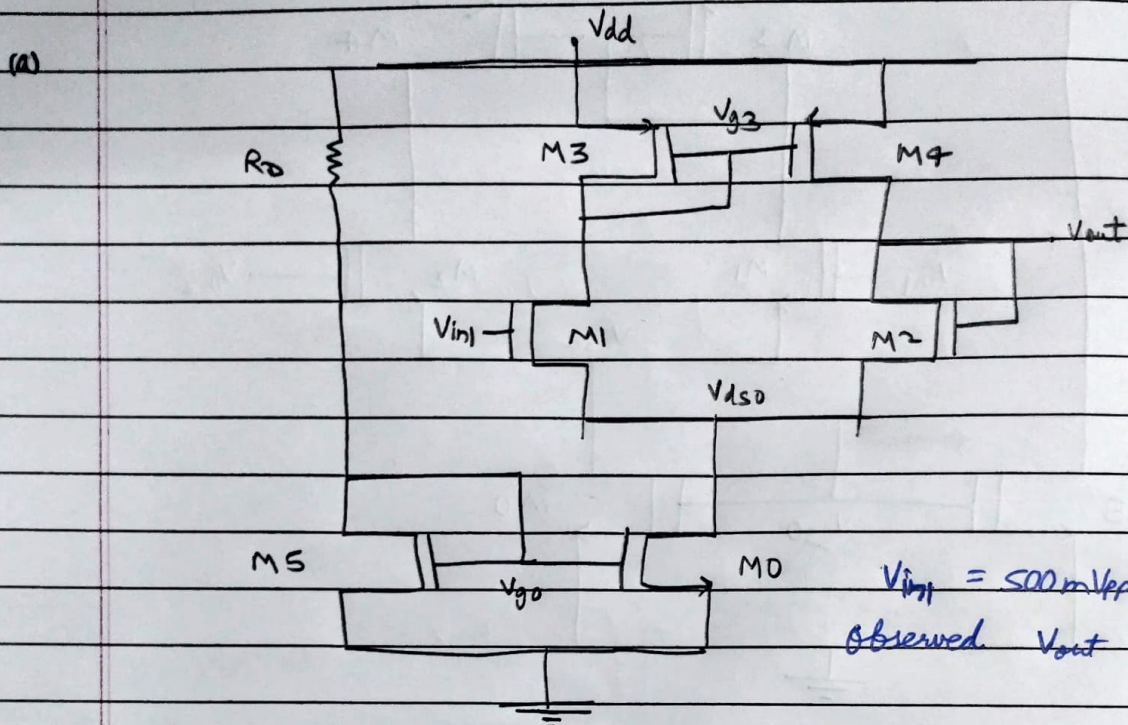 (a)
Vdd
Vg3
M3
M4
RD
Vout
Vin1
M1
M2
Vds0
M5
Vg0
M0
Vin1 = 500mVpp
Observed Vout